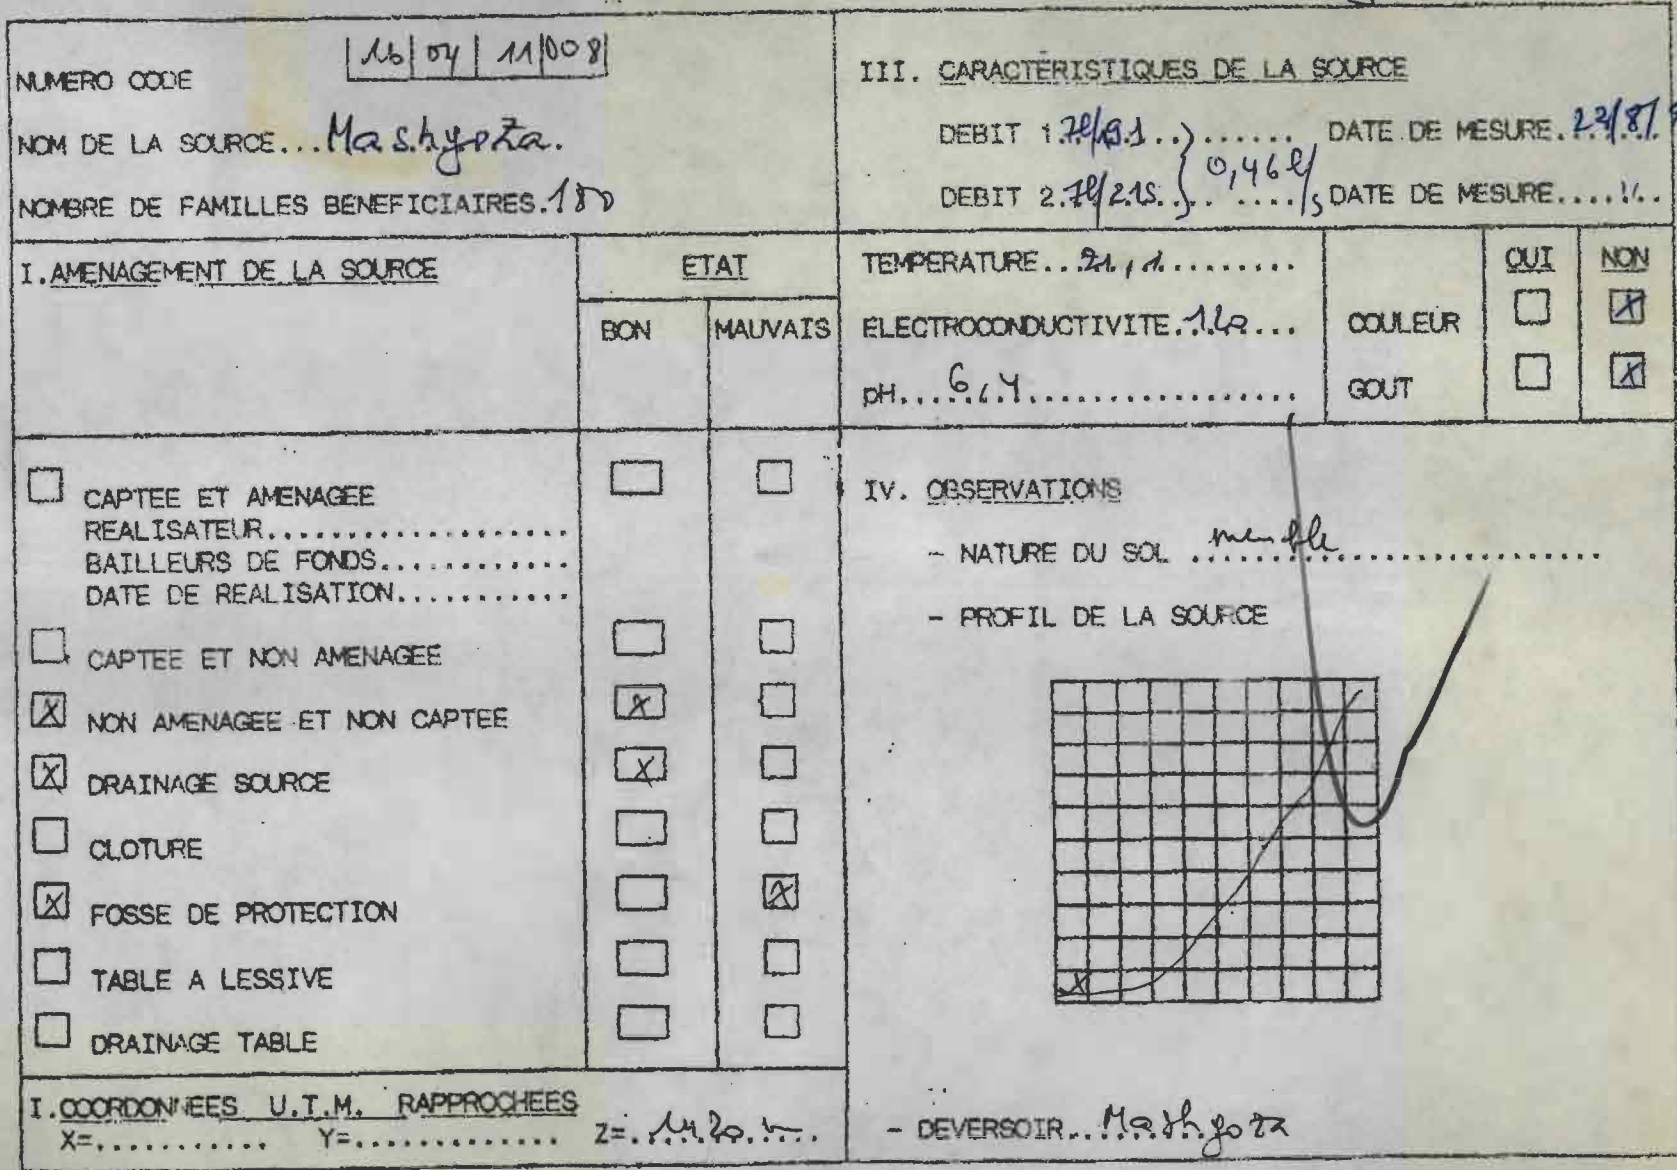 NUMERO CODE |16|04|11|008|
NOM DE LA SOURCE...Mashyoza.
NOMBRE DE FAMILLES BENEFICIAIRES.180
I.AMENAGEMENT DE LA SOURCE
ETAT
BON
MAUVAIS
CAPTEE ET AMENAGEE
REALISATEUR...................
BAILLEURS DE FONDS............
DATE DE REALISATION...........
CAPTEE ET NON AMENAGEE
X NON AMENAGEE ET NON CAPTEE X
X DRAINAGE SOURCE X
CLOTURE
X FOSSE DE PROTECTION X
TABLE A LESSIVE
DRAINAGE TABLE
I.COORDONNEES U.T.M. RAPPROCHEES
X=............ Y=.............. Z=..1420.m..
III. CARACTERISTIQUES DE LA SOURCE
DEBIT 1. DATE DE MESURE.
DEBIT 2.7l/ 0,46 l/s DATE DE MESURE....
TEMPERATURE...21,1.........
ELECTROCONDUCTIVITE.
pH....6,4.................
OUI NON
COULEUR X
GOUT X
IV. OBSERVATIONS
- NATURE DU SOL meuble
- PROFIL DE LA SOURCE
X
- DEVERSOIR..Mashyoza